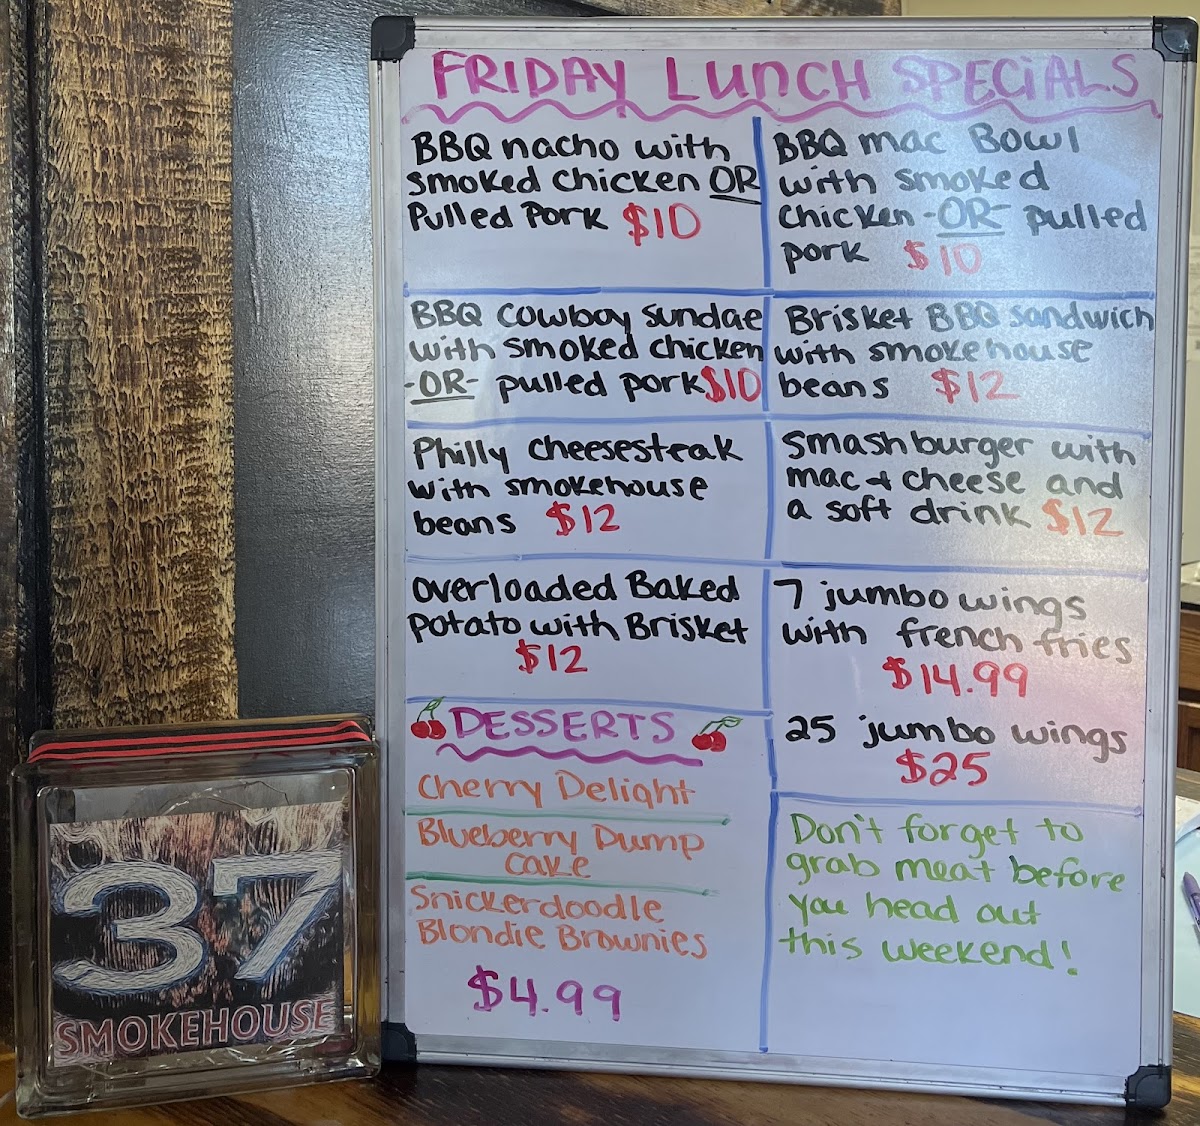 FRIDAY LUNCH SPECIALS
BBQ nacho with
smoked chicken OR
Pulled Pork $10
BBQ mac Bowl
with smoked
chicken -OR- pulled
pork $10
BBQ cowboy sundae
with smoked chicken
-OR- pulled pork $10
Brisket BBQ sandwich
with smokehouse
beans $12
Philly cheesesteak
with smokehouse
beans $12
Smashburger with
mac + cheese and
a soft drink $12
Overloaded Baked
Potato with Brisket
$12
7 jumbo wings
with french fries
$14.99
25 jumbo wings
$25
DESSERTS
Cherry Delight
Blueberry Dump
Cake
Snickerdoodle
Blondie Brownies
$4.99
Don't forget to
grab meat before
you head out
this weekend!
37
SMOKEHOUSE